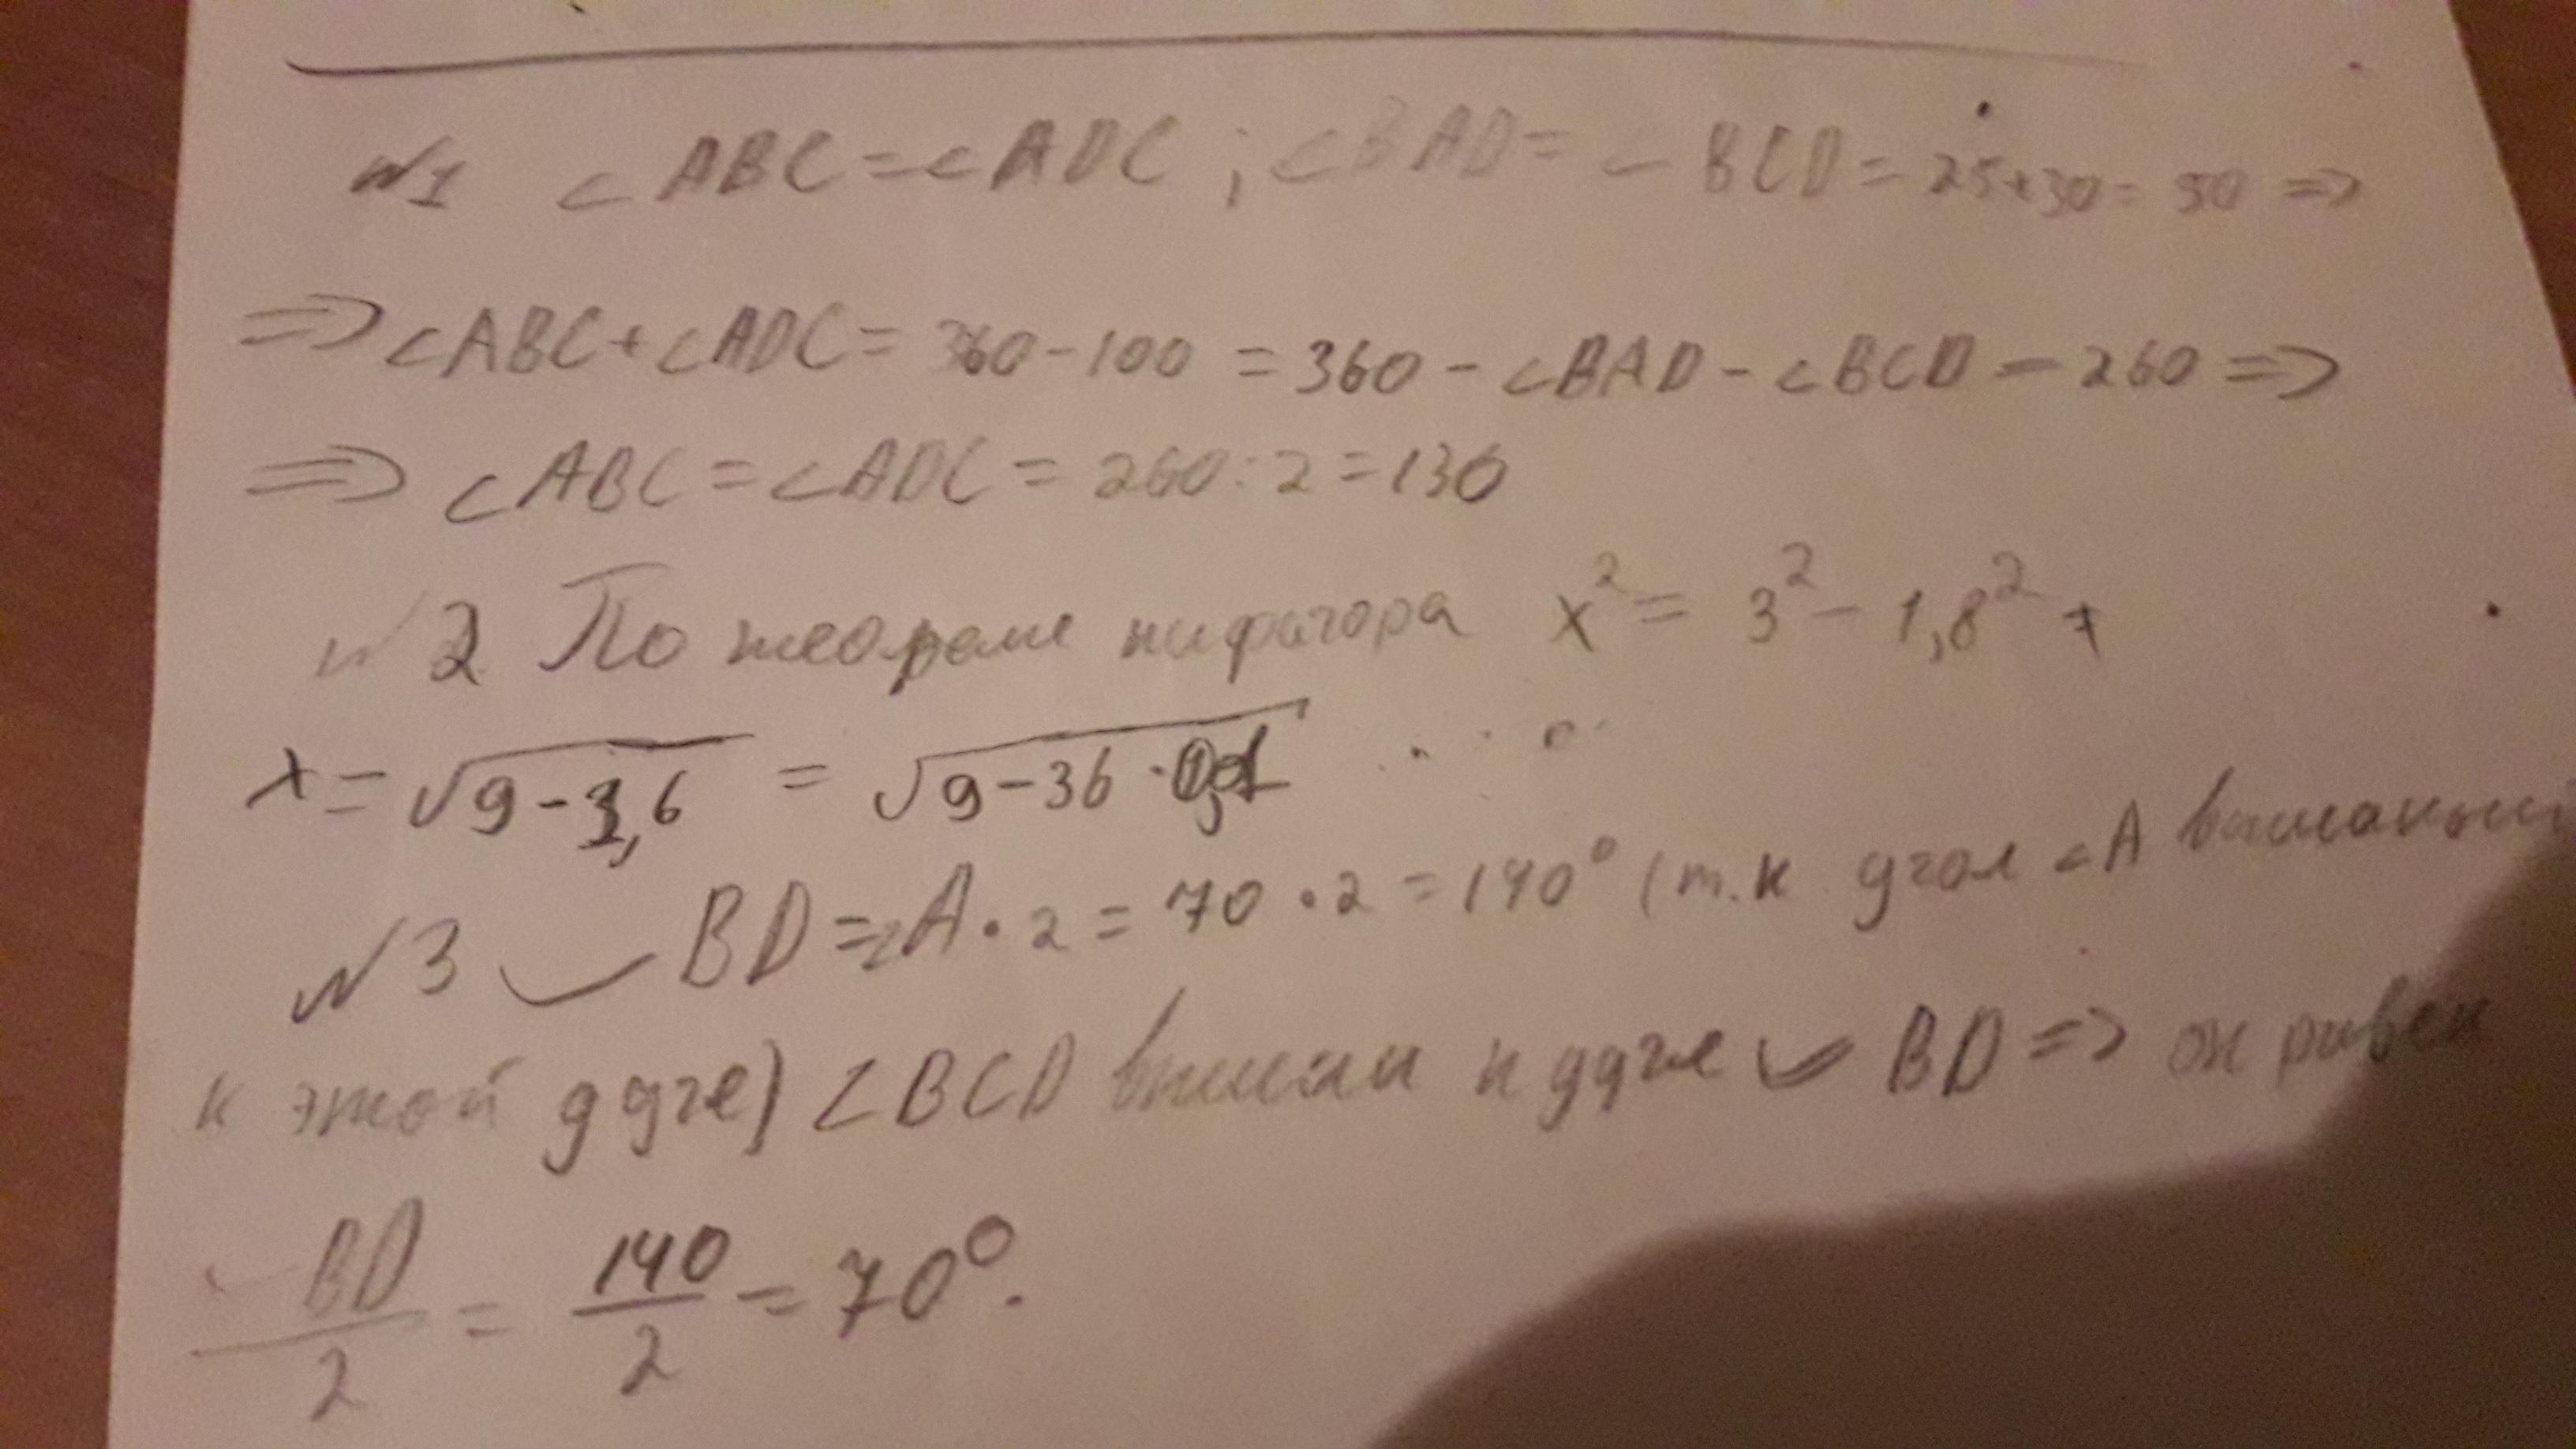 №1 ∠ABC=∠ADC ; ∠BAD= ∠BCD= 25+30= 50 =>
=> ∠ABC+∠ADC= 360-100 = 360 - ∠BAD - ∠BCD = 260 =>
=> ∠ABC = ∠ADC = 260:2 =130
№2 По теореме пифагора x² = 3² - 1,8²
x = √9-3,6 = √9-36·0,1
№3 ◡BD=∠A·2 = 70·2 =140° (т.к угол ∠A вписанный
к этой дуге) ∠BCD вписан к дуге ◡BD => он равен
◡BD/2 = 140/2 = 70°.